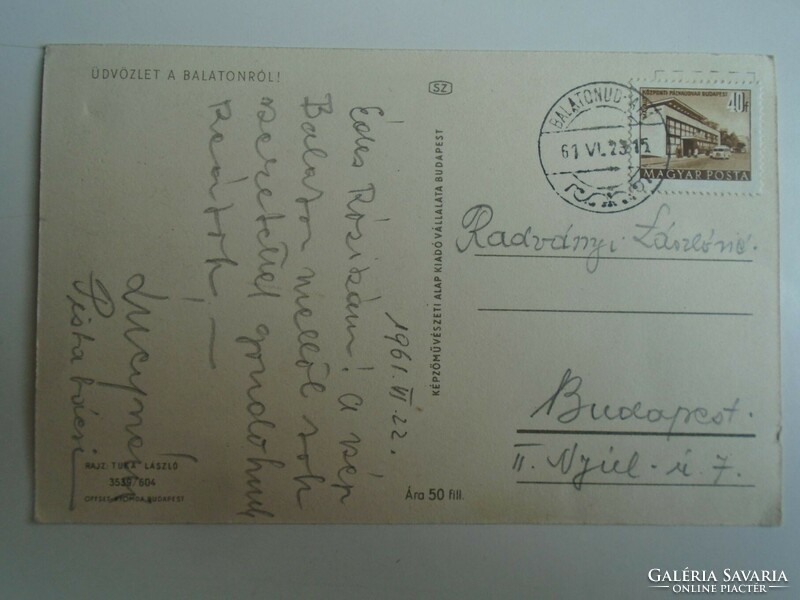 ÜDVÖZLET A BALATONRÓL!
SZ
BALATONUD
61 VI. 23. 15
KÖZPONTI PÁLYAUDVAR BUDAPEST
40f
MAGYAR POSTA
1961. VI. 22.
Édes Rózsikám! A szép
Balaton mellől sok
szeretettel gondolunk
Reátok! —
Pista bácsi
KÉPZŐMŰVÉSZETI ALAP KIADÓVÁLLALATA BUDAPEST
Radványi Lászlóné.
Budapest.
II. Nyúl-u. 7.
RAJZ: LÁSZLÓ
3539/604
OFFSET-NYOMDA BUDAPEST
Ára 50 fill.
GALÉRIA SAVARIA
ONLINE PIACTÉR